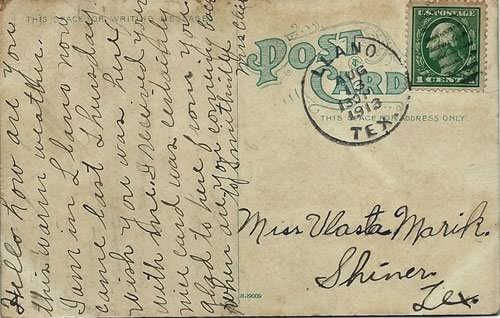 THIS SPACE FOR WRITING MESSAGES
Hello how are you
this warm weather.
I am in Llano now
came last Thursday.
wish you was here
with me. I received your
nice card was certainly
glad to here from you
When are you coming over
to Smithville
POST CARD
THIS SPACE FOR ADDRESS ONLY
LLANO
AUG
1913
TEX.
U.S. POSTAGE
1 CENT 1
Miss Vlasta Marik.
Shiner
Tex.
B-19009